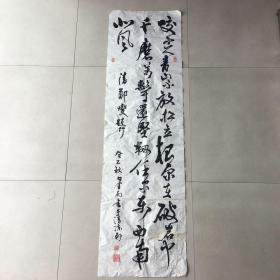 咬定青山不放松立根原在破岩中
千磨万击还坚韧任尔东西南
北风
清郑燮题竹
癸巳秋